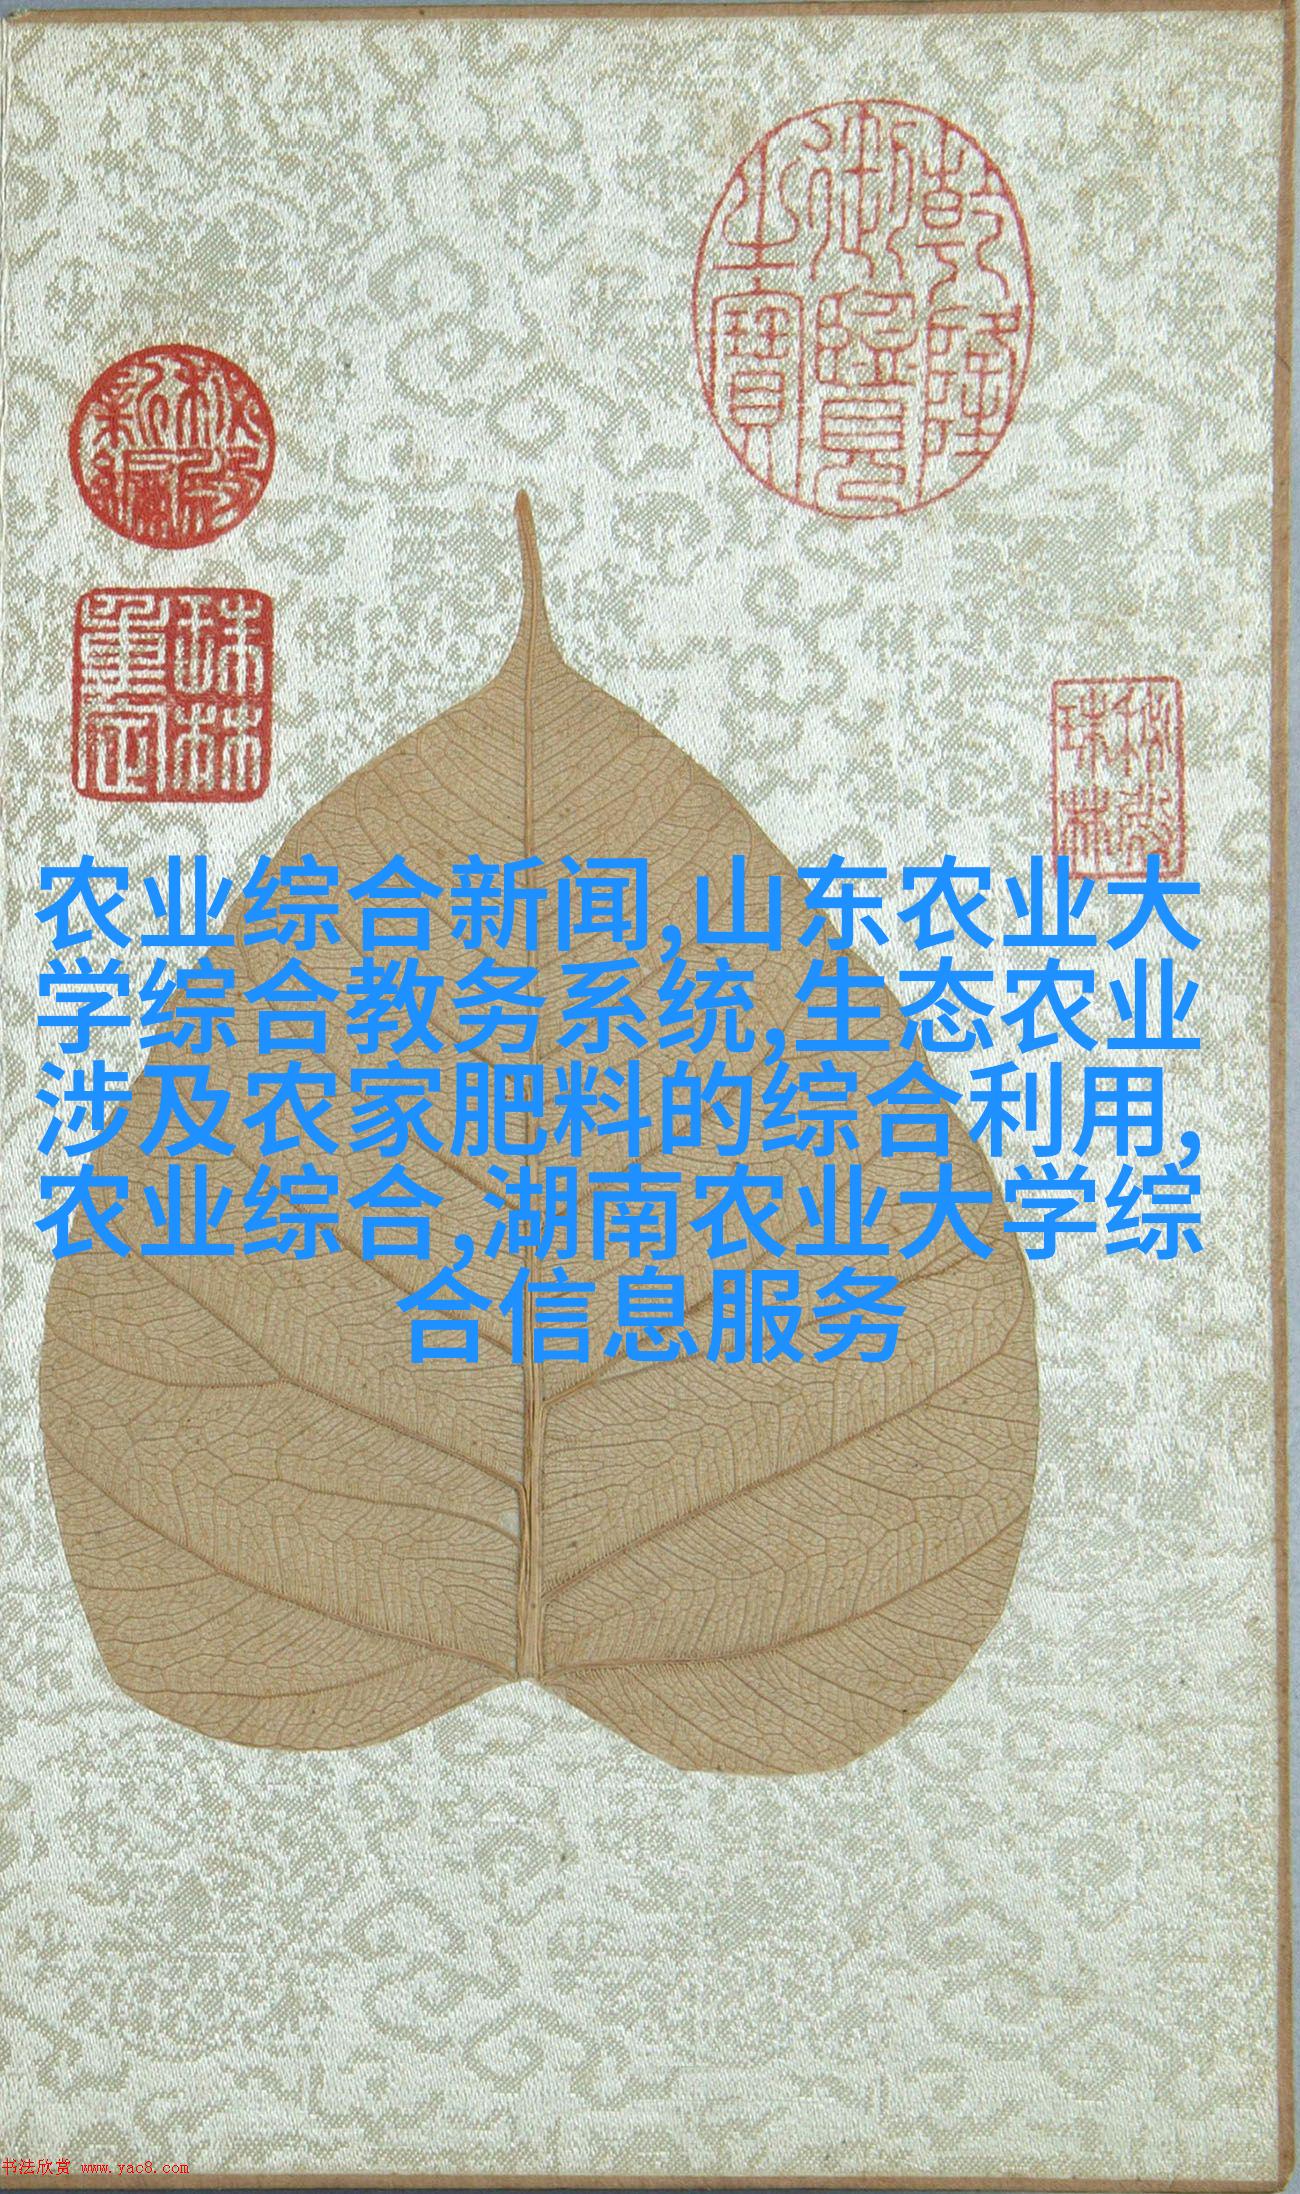 乾隆
御览
之宝
秘殿
新编
珠林
重定
秘殿
珠林
农业综合新闻,山东农业大
学综合教务系统,生态农业
涉及农家肥料的综合利用,
农业综合,湖南农业大学综
合信息服务
书法欣赏 www.yac8.com